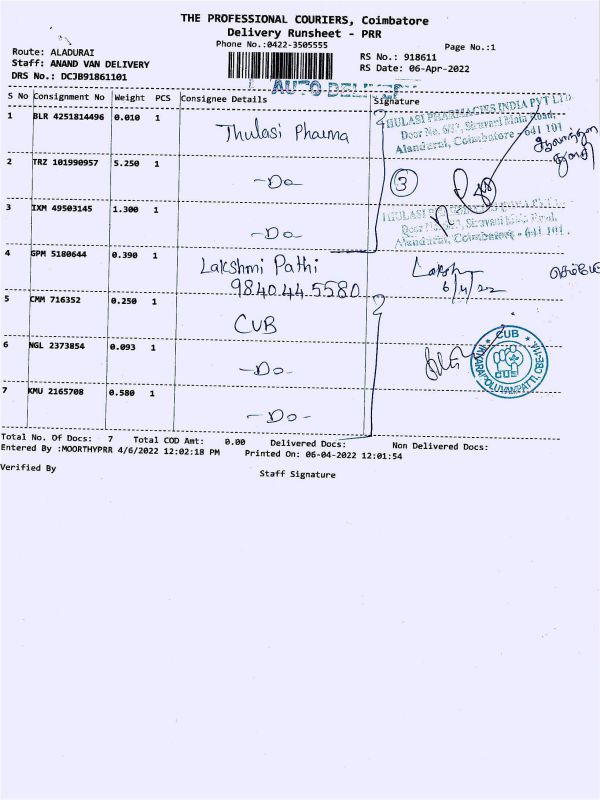 THE PROFESSIONAL COURIERS, Coimbatore
Delivery Runsheet - PRR
Phone No.:0422-3505555
Page No.:1
Route: ALADURAI
RS No.: 918611
Staff: ANAND VAN DELIVERY
RS Date: 06-Apr-2022
DRS No.: DCJB91861101
AUTO DELIVERY
S No Consignment No Weight PCS Consignee Details Signature
1 BLR 4251814496 0.010 1 Thulasi Pharma
THULASI PHARMACIES INDIA PVT LTD
Door No. 6/37, Siruvani Main Road,
Alandurai, Coimbatore - 641 101
2 TRZ 101990957 5.250 1 -Do
3
3 IXM 49503145 1.300 1 -Do
Alandurai, Coimbatore - 641 101.
4 GPM 5180644 0.390 1 Lakshmi Pathi
9840445580
6/4/22
5 CMM 716352 0.250 1 CUB
CUB
6 NGL 2373854 0.093 1 -Do-
7 KMU 2165708 0.580 1 -Do-
Total No. Of Docs: 7 Total COD Amt: 0.00 Delivered Docs: Non Delivered Docs:
Entered By :MOORTHYPRR 4/6/2022 12:02:18 PM Printed On: 06-04-2022 12:01:54
Verified By
Staff Signature